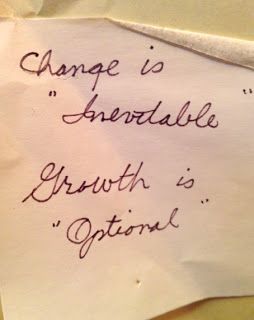 Change is
"Inevitable"
Growth is
"Optional"